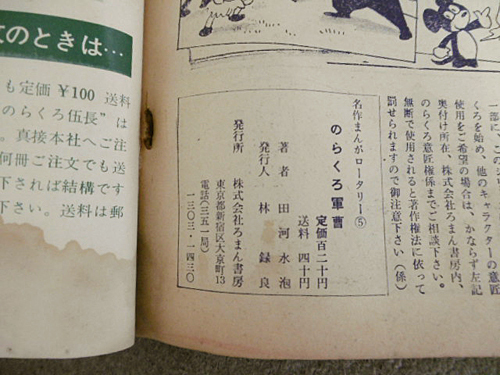 文のときは…
も定価 ¥100 送料
のらくろ伍長”は
。直接本社へご注
何冊ご注文でも送
下されば結構です
さい。送料は郵
部」、このシリ
くろを始め、他のキャラクターの意匠
使用をご希望の場合は、かならず左記
奥付け所在、株式会社ろまん書房内、
のらくろ意匠権係までご相談下さい。
無断で使用されると著作権法に依って
罰せられますので御注意下さい(係)
名作まんがロータリー⑤
のらくろ軍曹
定価百二十円
送料 四十円
著者 田河水泡
発行人 林 録良
発行所 株式会社ろまん書房
東京都新宿区大京町13
電話(三五一局)
一三〇三・一四三〇